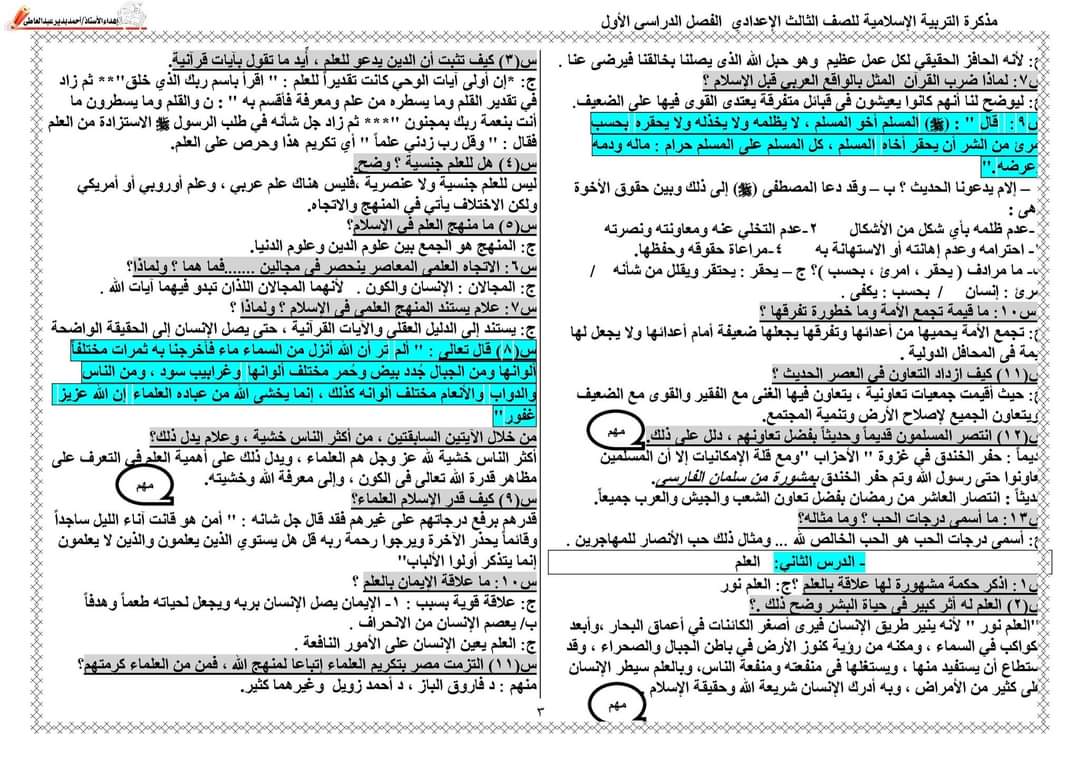 مذكرة التربية الإسلامية للصف الثالث الإعدادي الفصل الدراسى الأول
إعداد الأستاذ/أحمد بدير عبدالعاطى
: لأنه الحافز الحقيقي لكل عمل عظيم وهو حبل الله الذى يصلنا بخالقنا فيرضى عنا .
س٧: لماذا ضرب القرآن المثل بالواقع العربي قبل الإسلام ؟
ج: ليوضح لنا أنهم كانوا يعيشون في قبائل متفرقة يعتدى القوى فيها على الضعيف.
س٩ : قال " : (ﷺ) المسلم أخو المسلم ، لا يظلمه ولا يخذله ولا يحقره بحسب
مرئ من الشر أن يحقر أخاه المسلم ، كل المسلم على المسلم حرام : ماله ودمه
عرضه."
– إلام يدعونا الحديث ؟ ب – وقد دعا المصطفى (ﷺ) إلى ذلك وبين حقوق الأخوة
هى :
-عدم ظلمه بأي شكل من الأشكال ٢-عدم التخلي عنه ومعاونته ونصرته
- احترامه وعدم إهانته أو الاستهانة به ٤-مراعاة حقوقه وحفظها.
- ما مرادف ( يحقر ، امرئ ، بحسب )؟ ج – يحقر : يحتقر ويقلل من شأنه /
مرئ : إنسان / بحسب : يكفى .
س١٠: ما قيمة تجمع الأمة وما خطورة تفرقها ؟
ج: تجمع الأمة يحميها من أعدائها وتفرقها يجعلها ضعيفة أمام أعدائها ولا يجعل لها
يمة في المحافل الدولية .
س(١١) كيف ازداد التعاون في العصر الحديث ؟
ج: حيث أقيمت جمعيات تعاونية ، يتعاون فيها الغنى مع الفقير والقوى مع الضعيف
ويتعاون الجميع لإصلاح الأرض وتنمية المجتمع.
مهم
س(١٢) انتصر المسلمون قديماً وحديثاً بفضل تعاونهم ، دلل على ذلك.
ديماً : حفر الخندق في غزوة " الأحزاب "ومع قلة الإمكانيات إلا أن المسلمين
عاونوا حتى رسول الله وتم حفر الخندق بمشورة من سلمان الفارسى.
ديثاً : انتصار العاشر من رمضان بفضل تعاون الشعب والجيش والعرب جميعاً.
س١٣: ما أسمى درجات الحب ؟ وما مثاله؟
ج: أسمى درجات الحب هو الحب الخالص لله ... ومثال ذلك حب الأنصار للمهاجرين .
- الدرس الثاني: العلم
س١: اذكر حكمة مشهورة لها علاقة بالعلم ؟ج: العلم نور
س(٢) العلم له أثر كبير في حياة البشر وضح ذلك .؟
"العلم نور " لأنه ينير طريق الإنسان فيرى أصغر الكائنات في أعماق البحار ،وأبعد
كواكب في السماء ، ومكنه من رؤية كنوز الأرض في باطن الجبال والصحراء ، وقد
ستطاع أن يستفيد منها ، ويستغلها فى منفعته ومنفعة الناس،وبالعلم سيطر الإنسان
لى كثير من الأمراض ، وبه أدرك الإنسان شريعة الله وحقيقة الإسلام .
مهم
س(٣) كيف تثبت أن الدين يدعو للعلم ، أيد ما تقول بآيات قرآنية.
ج: *إن أولى آيات الوحي كانت تقديراً للعلم : " اقرأ باسم ربك الذي خلق"** ثم زاد
في تقدير القلم وما يسطره من علم ومعرفة فأقسم به " : ن والقلم وما يسطرون ما
أنت بنعمة ربك بمجنون "*** ثم زاد جل شأنه في طلب الرسول ﷺ الاستزادة من العلم
فقال : " وقل رب زدني علماً " أي تكريم هذا وحرص على العلم.
س(٤) هل للعلم جنسية ؟ وضح.
ليس للعلم جنسية ولا عنصرية ،فليس هناك علم عربي ، وعلم أوروبي أو أمريكي
ولكن الاختلاف يأتي في المنهج والاتجاه.
س(٥) ما منهج العلم في الإسلام؟
ج: المنهج هو الجمع بين علوم الدين وعلوم الدنيا.
س٦: الاتجاه العلمى المعاصر ينحصر فى مجالين .......فما هما ؟ ولماذا؟
ج: المجالان : الإنسان والكون . لأنهما المجالان اللذان تبدو فيهما آيات الله .
س٧: علام يستند المنهج العلمى فى الاسلام ؟ ولماذا ؟
ج: يستند إلى الدليل العقلي والآيات القرآنية ، حتى يصل الإنسان إلى الحقيقة الواضحة
س(٨) قال تعالى : " ألم تر أن الله أنزل من السماء ماء فأخرجنا به ثمرات مختلفاً
ألوانها ومن الجبال جُدد بيض وحُمر مختلف ألوانها وغرابيب سود ، ومن الناس
والدواب والأنعام مختلف ألوانه كذلك ، إنما يخشى الله من عباده العلماء إن الله عزيز
غفور "
من خلال الآيتين السابقتين ، من أكثر الناس خشية ، وعلام يدل ذلك؟
أكثر الناس خشية لله عز وجل هم العلماء ، ويدل ذلك على أهمية العلم في التعرف على
مظاهر قدرة الله تعالى فى الكون ، وإلى معرفة الله وخشيته.
مهم
س(٩) كيف قدر الإسلام العلماء؟
قدرهم برفع درجاتهم على غيرهم فقد قال جل شانه : " أمن هو قانت آناء الليل ساجداً
وقائماً يحذر الآخرة ويرجوا رحمة ربه قل هل يستوي الذين يعلمون والذين لا يعلمون
إنما يتذكر أولوا الألباب"
س١٠: ما علاقة الإيمان بالعلم ؟
ج: علاقة قوية بسبب : ١- الإيمان يصل الإنسان بربه ويجعل لحياته طعماً وهدفاً
ب/ يعصم الإنسان من الانحراف .
ج: العلم يعين الإنسان على الأمور النافعة .
س(١١) التزمت مصر بتكريم العلماء إتباعا لمنهج الله ، فمن من العلماء كرمتهم؟
منهم : د فاروق الباز ، د أحمد زويل وغيرهما كثير.
٣